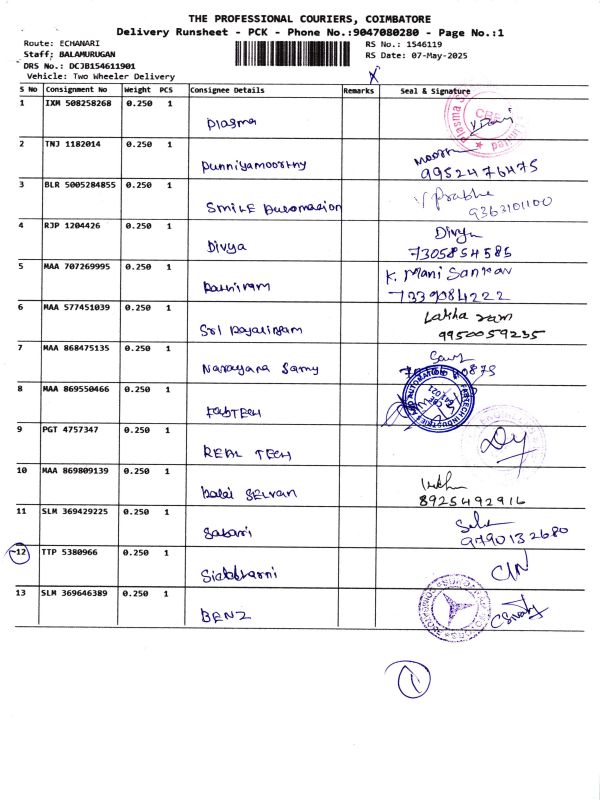 THE PROFESSIONAL COURIERS, COIMBATORE
Delivery Runsheet - PCK - Phone No.:9047080280 - Page No.:1
Route: ECHANARI
RS No.: 1546119
Staff: BALAMURUGAN
RS Date: 07-May-2025
DRS No.: DCJB154611901
Vehicle: Two Wheeler Delivery
S No Consignment No Weight PCS Consignee Details Remarks Seal & Signature
1 IXM 508258268 0.250 1 Plasma
2 TNJ 1182014 0.250 1 Punniyamoorthy
9952476475
3 BLR 5005284855 0.250 1 Smile Automation V Prabhu
9363101100
4 RJP 1204426 0.250 1 Divya Divya
7305854585
5 MAA 707269995 0.250 1 K. Mani Sankar
7339084222
6 MAA 577451039 0.250 1 Sri Lakha ram
9950059235
7 MAA 868475135 0.250 1 Narayana Samy
8 MAA 869550466 0.250 1 FabTECH
9 PGT 4757347 0.250 1 REAL TECH
10 MAA 869809139 0.250 1 Kalai SELVAN
8925492916
11 SLM 369429225 0.250 1 Sabari
9790132680
12 TTP 5380966 0.250 1
13 SLM 369646389 0.250 1 BENZ
1